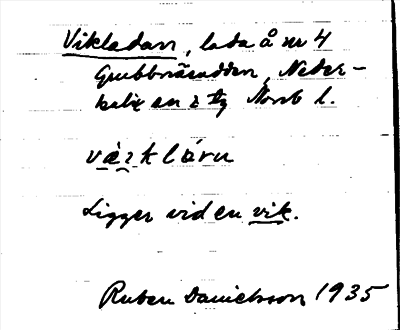 Vikladan, lada å nr 4
Grubbnäsudden, Neder-
kalix sn o tg Norrb l.
Ligger vid en vik.
Ruben Danielsson 1935